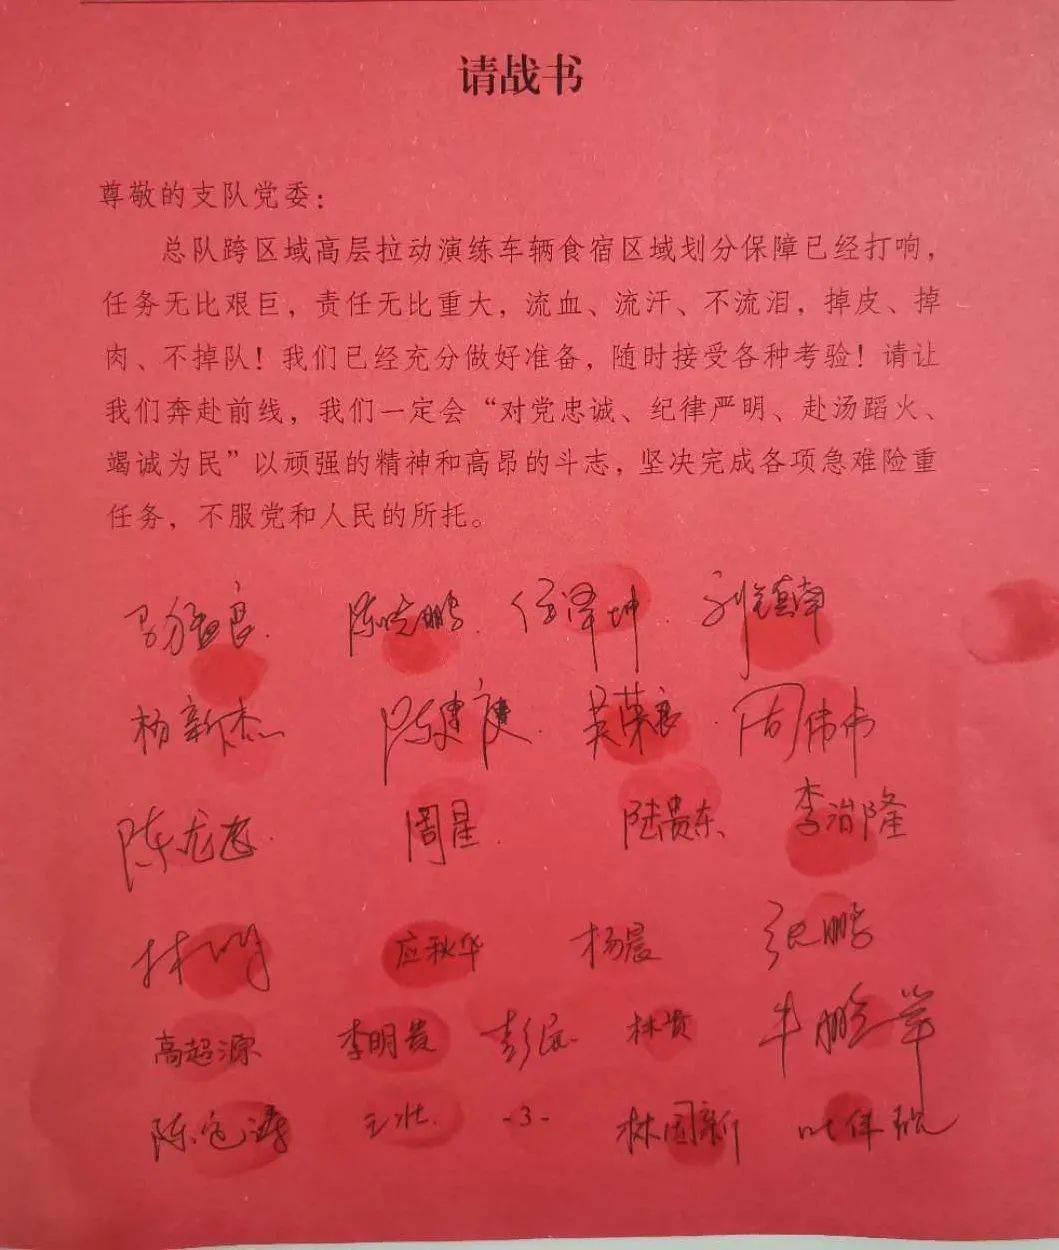 请战书
尊敬的支队党委：
总队跨区域高层拉动演练车辆食宿区域划分保障已经打响，
任务无比艰巨，责任无比重大，流血、流汗、不流泪，掉皮、掉
肉、不掉队！我们已经充分做好准备，随时接受各种考验！请让
我们奔赴前线，我们一定会“对党忠诚、纪律严明、赴汤蹈火、
竭诚为民”以顽强的精神和高昂的斗志，坚决完成各项急难险重
任务，不服党和人民的所托。
陈晓鹏 任泽坤 刘镇南
杨新杰 陈建 吴荣良 周伟伟
陈龙 周星 陆贵东 李治隆
林 应秋华 杨晨 张鹏
高超源 李明贵 彭辰 林贵 牛鹏举
陈定涛 王壮 -3- 林国新 叶伟